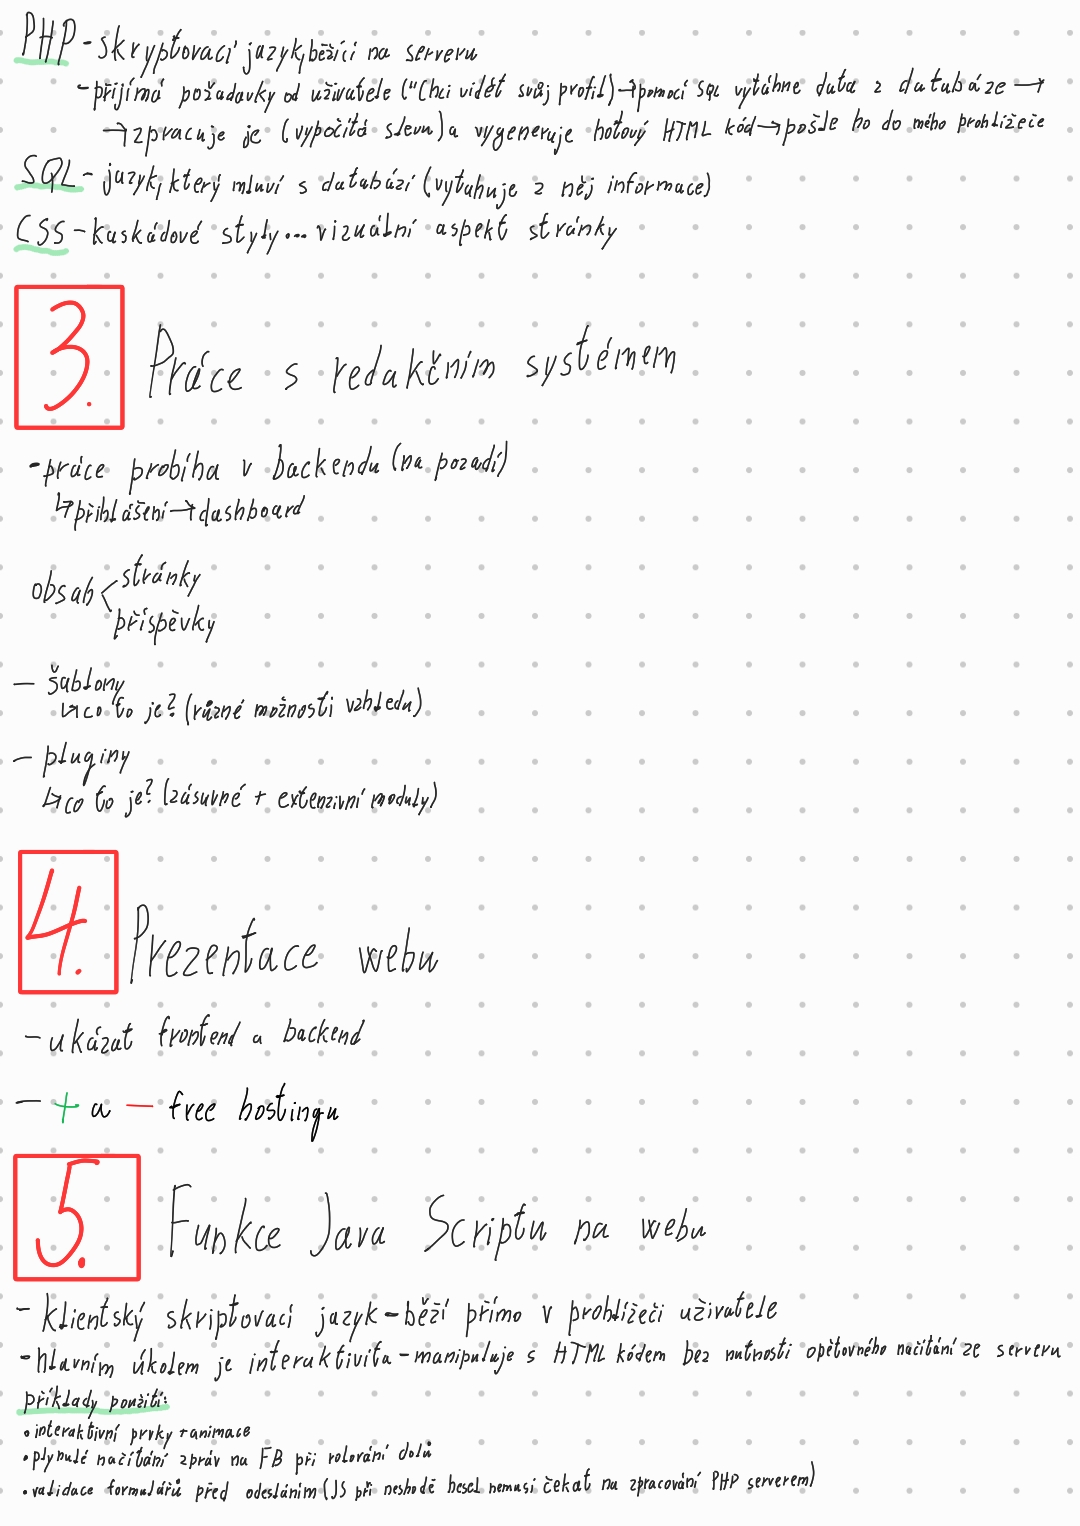 PHP - skryptovací jazyk, běžící na serveru
- přijímá požadavky od uživatele ("Chci vidět svůj profil) → pomocí SQL vytáhne data z databáze →
→ zpracuje je (vypočítá slevu) a vygeneruje hotový HTML kód → pošle ho do mého prohlížeče
SQL - jazyk, který mluví s databází (vytahuje z něj informace)
CSS - kaskádové styly... vizuální aspekt stránky
3. Práce s redakčním systémem
- práce probíha v backendu (na pozadí)
↳ přihlášení → dashboard
obsah < stránky
příspěvky
- šablony
↳ co to je? (různé možnosti vzhledu)
- pluginy
↳ co to je? (zásuvné + extenzivní moduly)
4. Prezentace webu
- ukázat frontend a backend
- + a - free hostingu
5. Funkce Java Scriptu na webu
- klientský skriptovací jazyk - běží přímo v prohlížeči uživatele
- hlavním úkolem je interaktivita - manipuluje s HTML kódem bez nutnosti opětovného načítání ze serveru
příklady použití:
• interaktivní prvky + animace
• plynulé načítání zpráv na FB při rolování dolů
• validace formulářů před odesláním (JS při neshodě hesel nemusí čekat na zpracování PHP serverem)